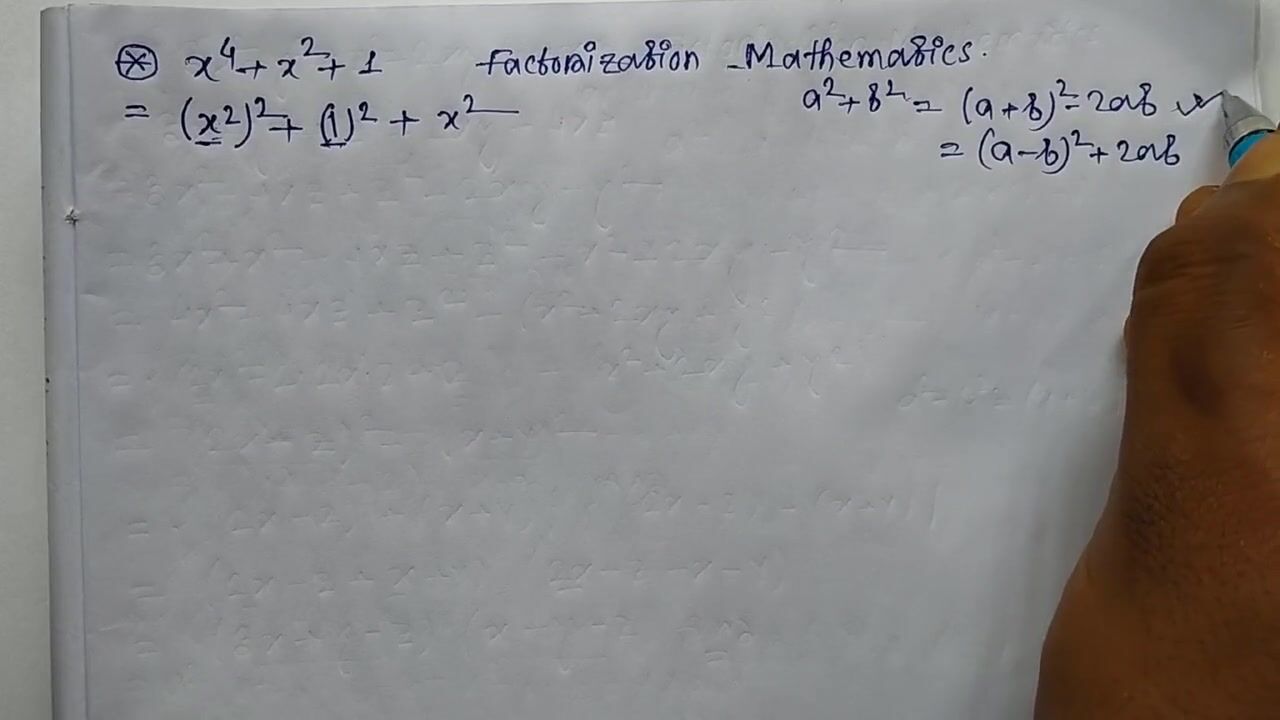 ⊛ x⁴ + x² + 1 Factorization Mathematics.
= (x²)² + (1)² + x²
a² + b² = (a+b)² - 2ab ✓
= (a-b)² + 2ab